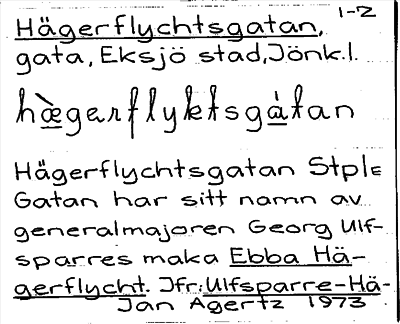 1-2
Hägerflychtsgatan,
gata, Eksjö stad, Jönk.l.
hä̀gerflyktsgá̱tan
Hägerflychtsgatan Stpl=
Gatan har sitt namn av
generalmajoren Georg Ulf-
sparres maka Ebba Hä-
gerflycht. Jfr: Ulfsparre-Hä-
Jan Agertz 1973